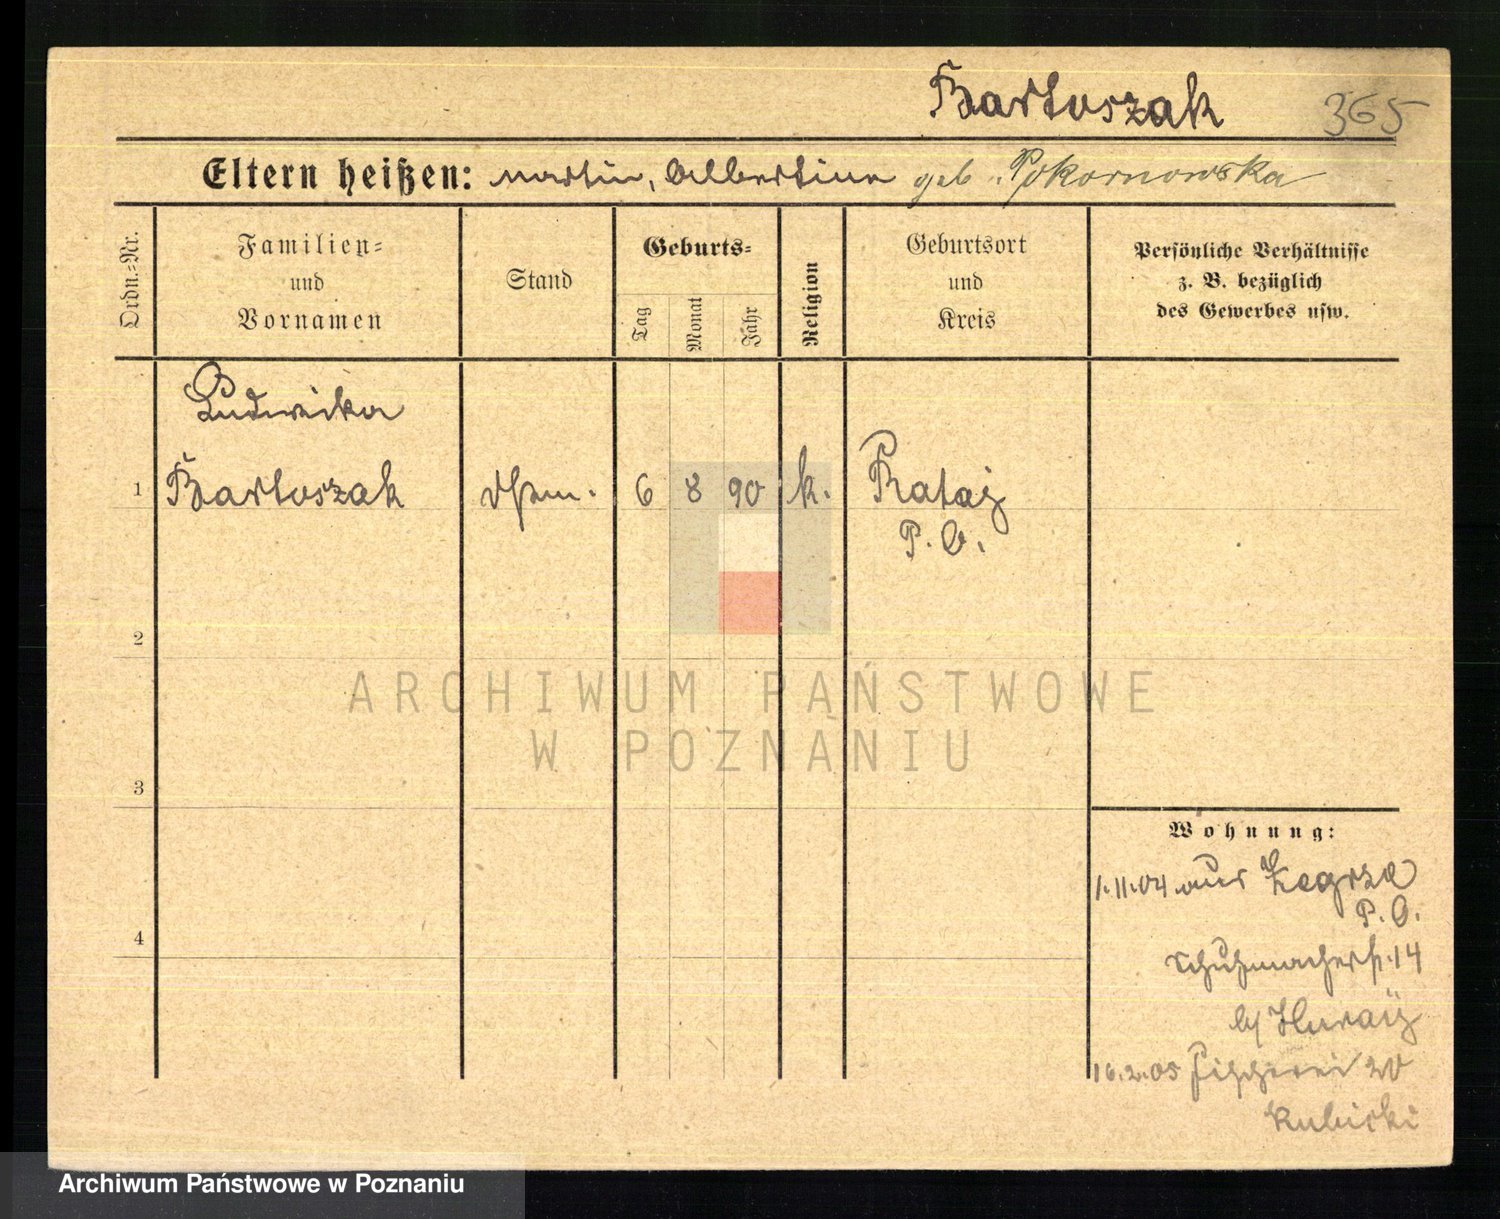 Bartoszak 365
Eltern heißen: Martin, Albertine geb. Pokornowska
Ordn.-Nr.
Familien-
und
Vornamen
Stand
Geburts-
Tag
Monat
Jahr
Religion
Geburtsort
und
Kreis
Persönliche Verhältnisse
z. B. bezüglich
des Gewerbes usw.
Ludwika
1 Bartoszak 6 8 90 k. Rataj
P. O.
2
ARCHIWUM PAŃSTWOWE
W POZNANIU
3
Wohnung:
1.11.04 aus Zegrze
P. O.
4
Schuhmacherstr. 14
16.2.05 Fischerei 20
Kubicki
Archiwum Państwowe w Poznaniu